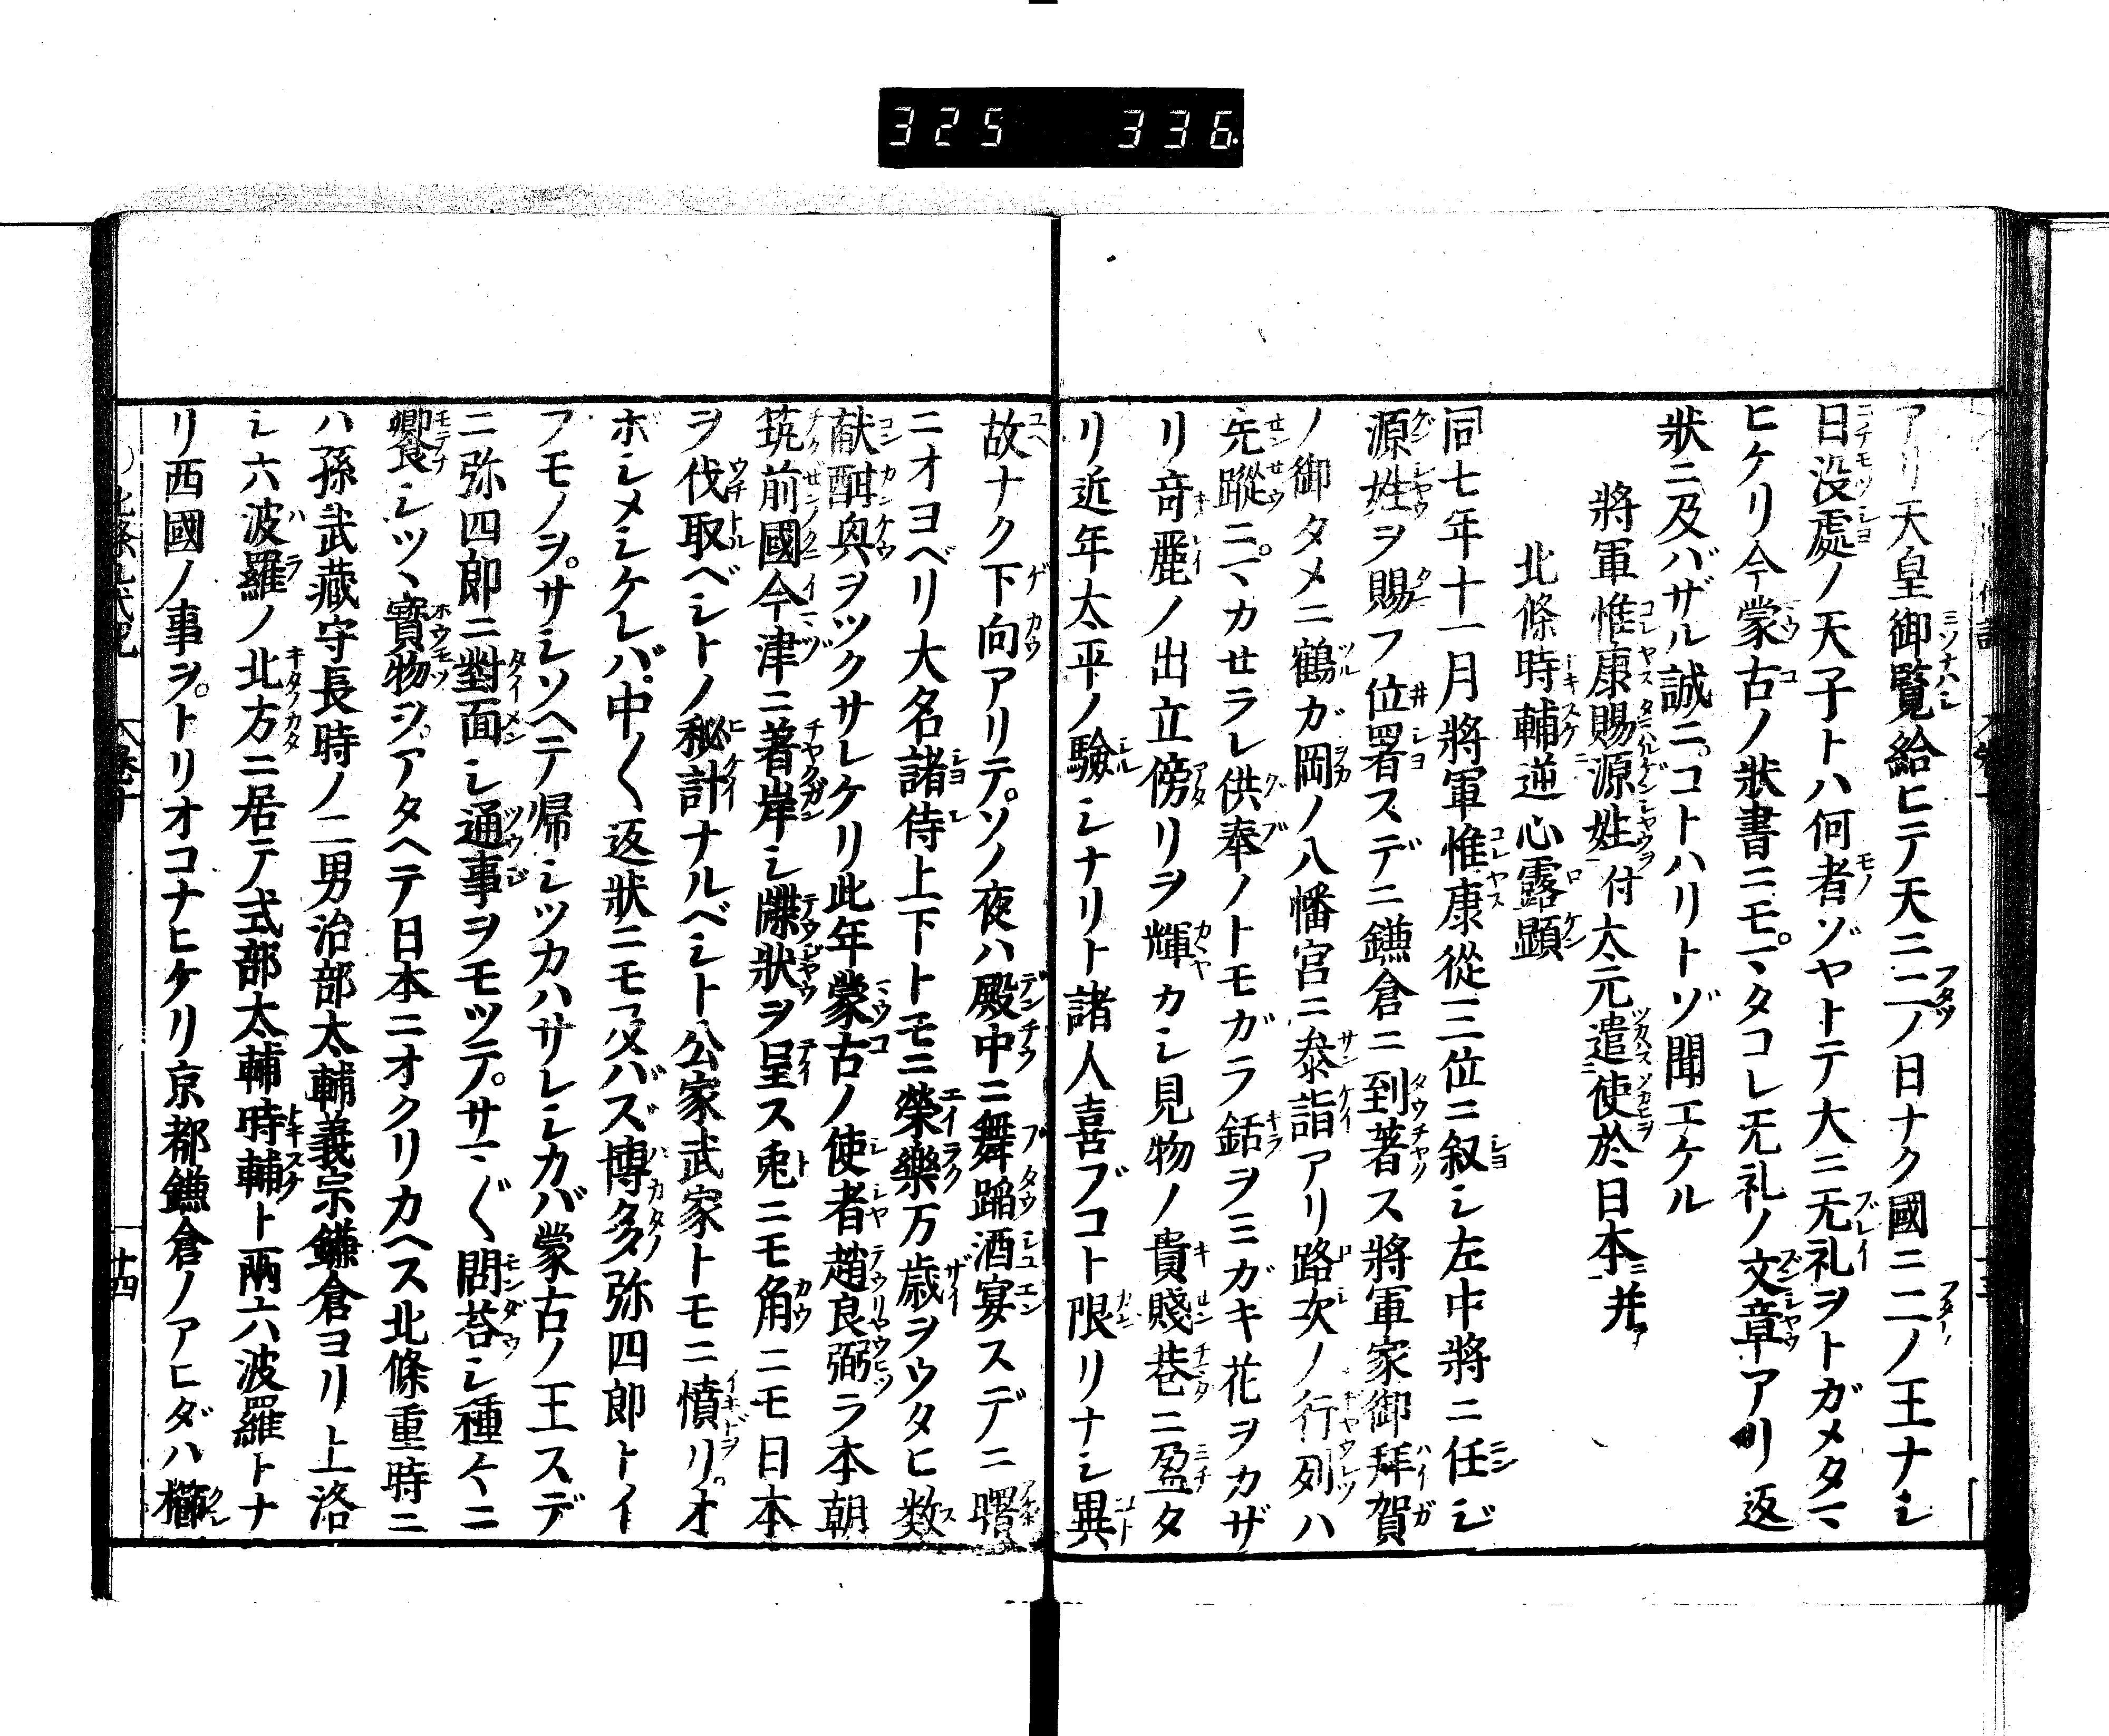 325 336
アリ天皇御覧給ヒテ天ニ二ノ日ナク國ニ二ノ王ナシ
日没處ノ天子トハ何者ゾヤトテ大ニ无礼ヲトガメタマ
ヒケリ今蒙古ノ狀書ニモマタコレ无礼ノ文章アリ返
狀ニ及バザル誠ニコトハリトゾ聞エケル
將軍惟康賜源姓付太元遣使於日本并
北條時輔逆心露顕
同七年十一月將軍惟康從三位ニ叙シ左中將ニ任ジ
源姓ヲ賜フ位署スデニ鎌倉ニ到著ス將軍家御拜賀
ノ御タメニ鶴ガ岡ノ八幡宮ニ参詣アリ路次ノ行列ハ
先蹤ニマカセラレ供奉ノトモガラ銛ヲミガキ花ヲカザ
リ竒麗ノ出立傍リヲ輝カシ見物ノ貴賤巷ニ盈タ
リ近年太平ノ驗シナリト諸人喜ブコト限リナシ異
故ナク下向アリテソノ夜ハ殿中ニ舞蹈酒宴スデニ曙
ニオヨベリ大名諸侍上下トモニ榮樂万歳ヲウタヒ数
献酣興ヲツクサレケリ此年蒙古ノ使者趙良弼ラ本朝
筑前國今津ニ著岸シ牒狀ヲ呈ス兎ニモ角ニモ日本
ヲ伐取ベシトノ秘計ナルベシト公家武家トモニ憤リオ
ボシメシケレバ中〱返狀ニモ及バズ博多弥四郎トイ
フモノヲサシソヘテ帰シツカハサレシカバ蒙古ノ王スデ
ニ弥四郎ニ對面シ通事ヲモツテサマ〲問荅シ種々ニ
饗シツヽ寳物ヲアタヘテ日本ニオクリカヘス北條重時ニ
ハ孫武藏守長時ノ二男治部太輔義宗鎌倉ヨリ上洛
シ六波羅ノ北方ニ居テ式部太輔時輔ト兩六波羅トナ
リ西國ノ事ヲトリオコナヒケリ京都鎌倉ノアヒダハ櫛
北條九代記 巻十 十四